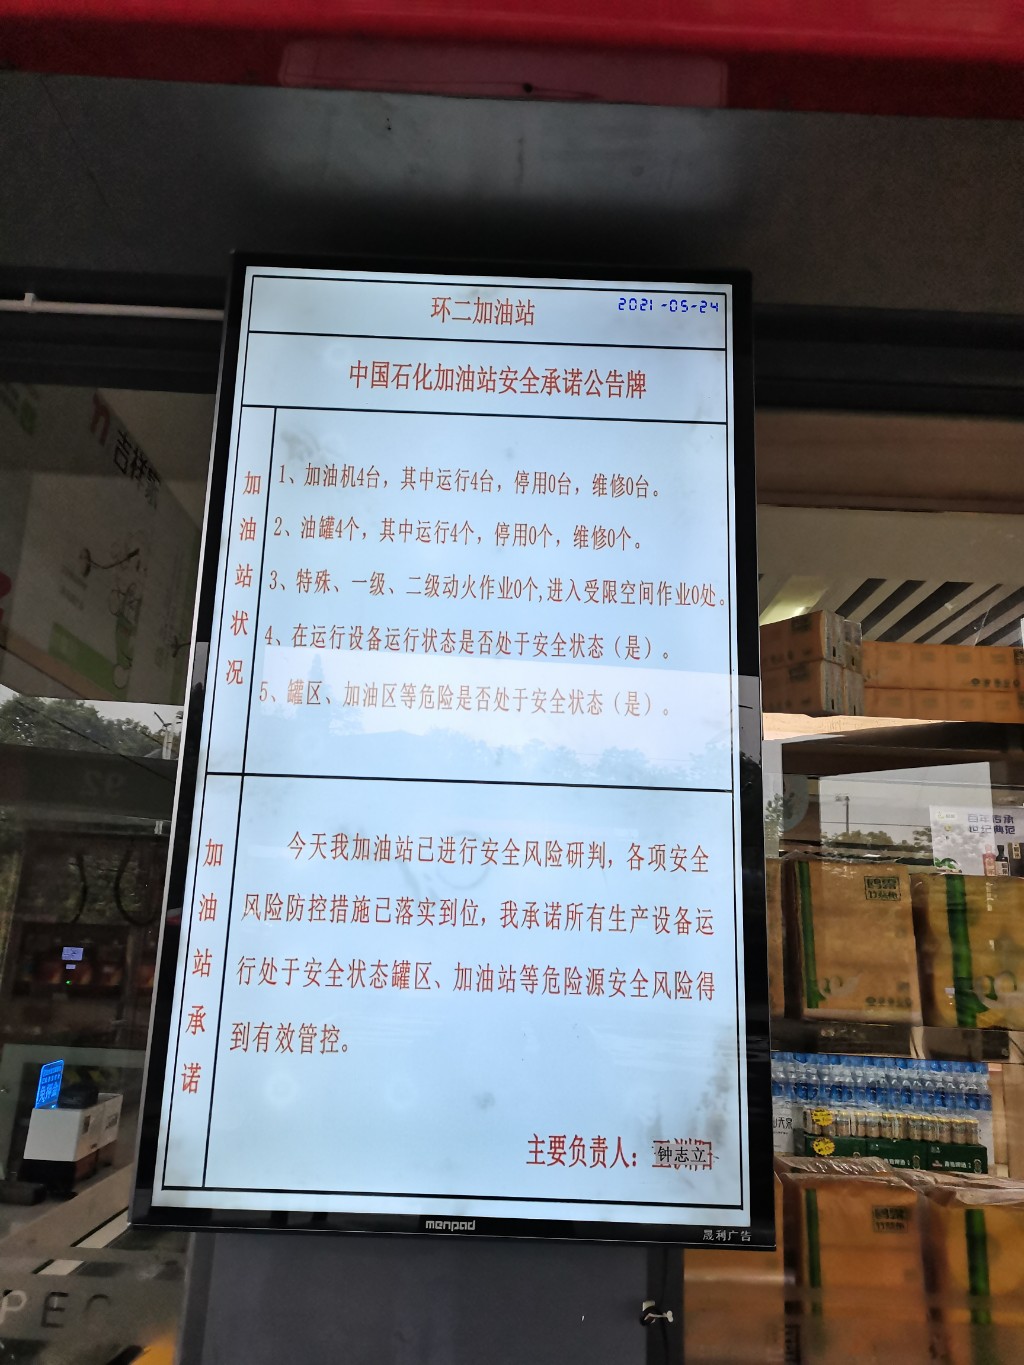 环二加油站
2021-05-24
中国石化加油站安全承诺公告牌
加油站状况
1、加油机4台，其中运行4台，停用0台，维修0台。
2、油罐4个，其中运行4个，停用0个，维修0个。
3、特殊、一级、二级动火作业0个,进入受限空间作业0处。
4、在运行设备运行状态是否处于安全状态（是）。
5、罐区、加油区等危险是否处于安全状态（是）。
加油站承诺
今天我加油站已进行安全风险研判，各项安全
风险防控措施已落实到位，我承诺所有生产设备运
行处于安全状态罐区、加油站等危险源安全风险得
到有效管控。
主要负责人：
钟志立
menpad
晟利广告
吉祥
92
百年传承
世纪典范
PEC